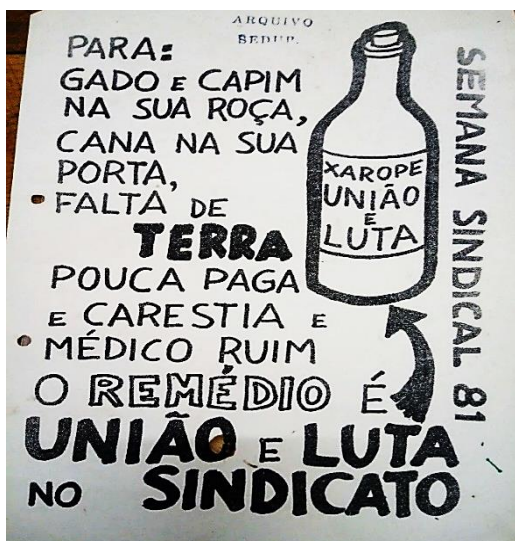 ARQUIVO
SEDUP.
PARA:
GADO E CAPIM
NA SUA ROÇA,
CANA NA SUA
PORTA,
FALTA DE
TERRA
POUCA PAGA
E CARESTIA E
MÉDICO RUIM
O REMÉDIO É
UNIÃO E LUTA
NO SINDICATO
XAROPE
UNIÃO
E
LUTA
SEMANA SINDICAL 81